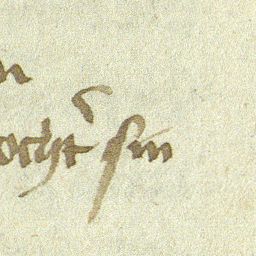 n
ocht sin